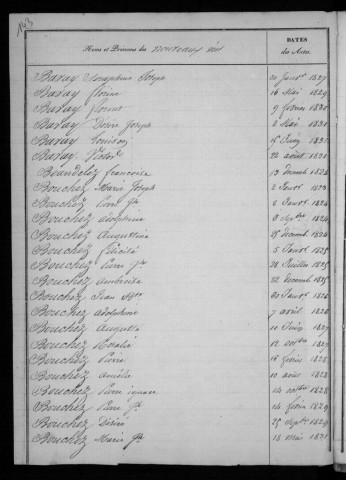 143
Noms et Prénoms des nouveaux nés
DATES
des Actes.
Baray Josephine Joseph 20 Janvr. 1827
Baray florine 16 Mai 1829
Baray florent 9 février 1830
Baray Désiré Joseph 2 Mai 1830
Baray Louison 15 Juin
Baray Victor 22 août 1830
Beaudelot françoise 13 décemb 1824
Bouchez Marie Joseph 2 Janvr 1823
Bouchez Pierre Jh 6 Janvr 1824
Bouchez adolphine 8 Septbre 1824
Bouchez Augustine 25 décemb 1824
Bouchez félicité 5 Janvr 1825
Bouchez Pierre Jh 28 Juillet 1825
Bouchez Ambroise 22 décemb 1825
Bouchez Jean Bte 30 Janvr 1826
Bouchez adolphine 7 avril 1826
Bouchez Auguste 10 Juin 1827
Bouchez Rosalie 12 octbre 1827
Bouchez Pierre 16 février 1828
Bouchez Amélie 10 août 1828
Bouchez Pierre ignace 14 octbre 1828
Bouchez Pierre Jh 14 février 1829
Bouchez Désiré 25 Septbre 1829
Bouchez Marie Jh 18 Mai